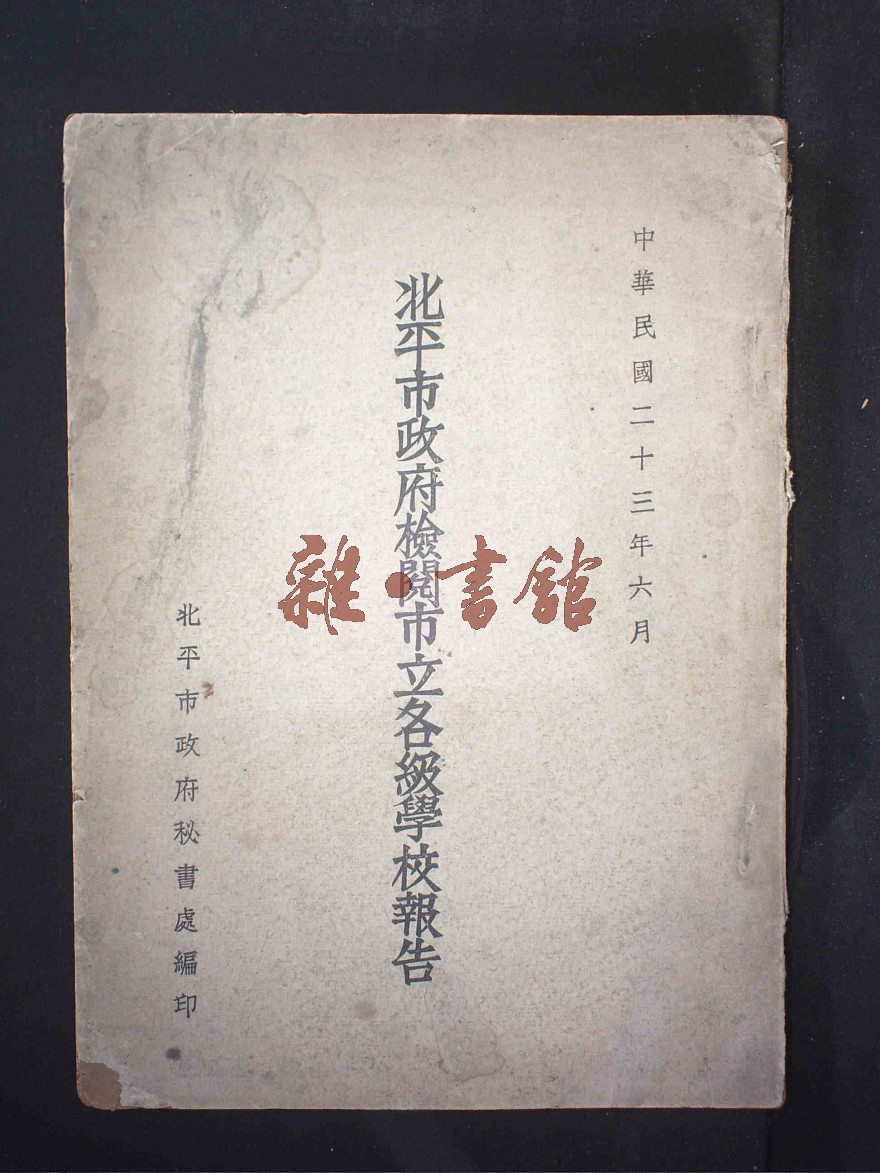 中華民國二十三年六月
北平市政府檢閱市立各級學校報告
北平市政府秘書處編印
雜·書館